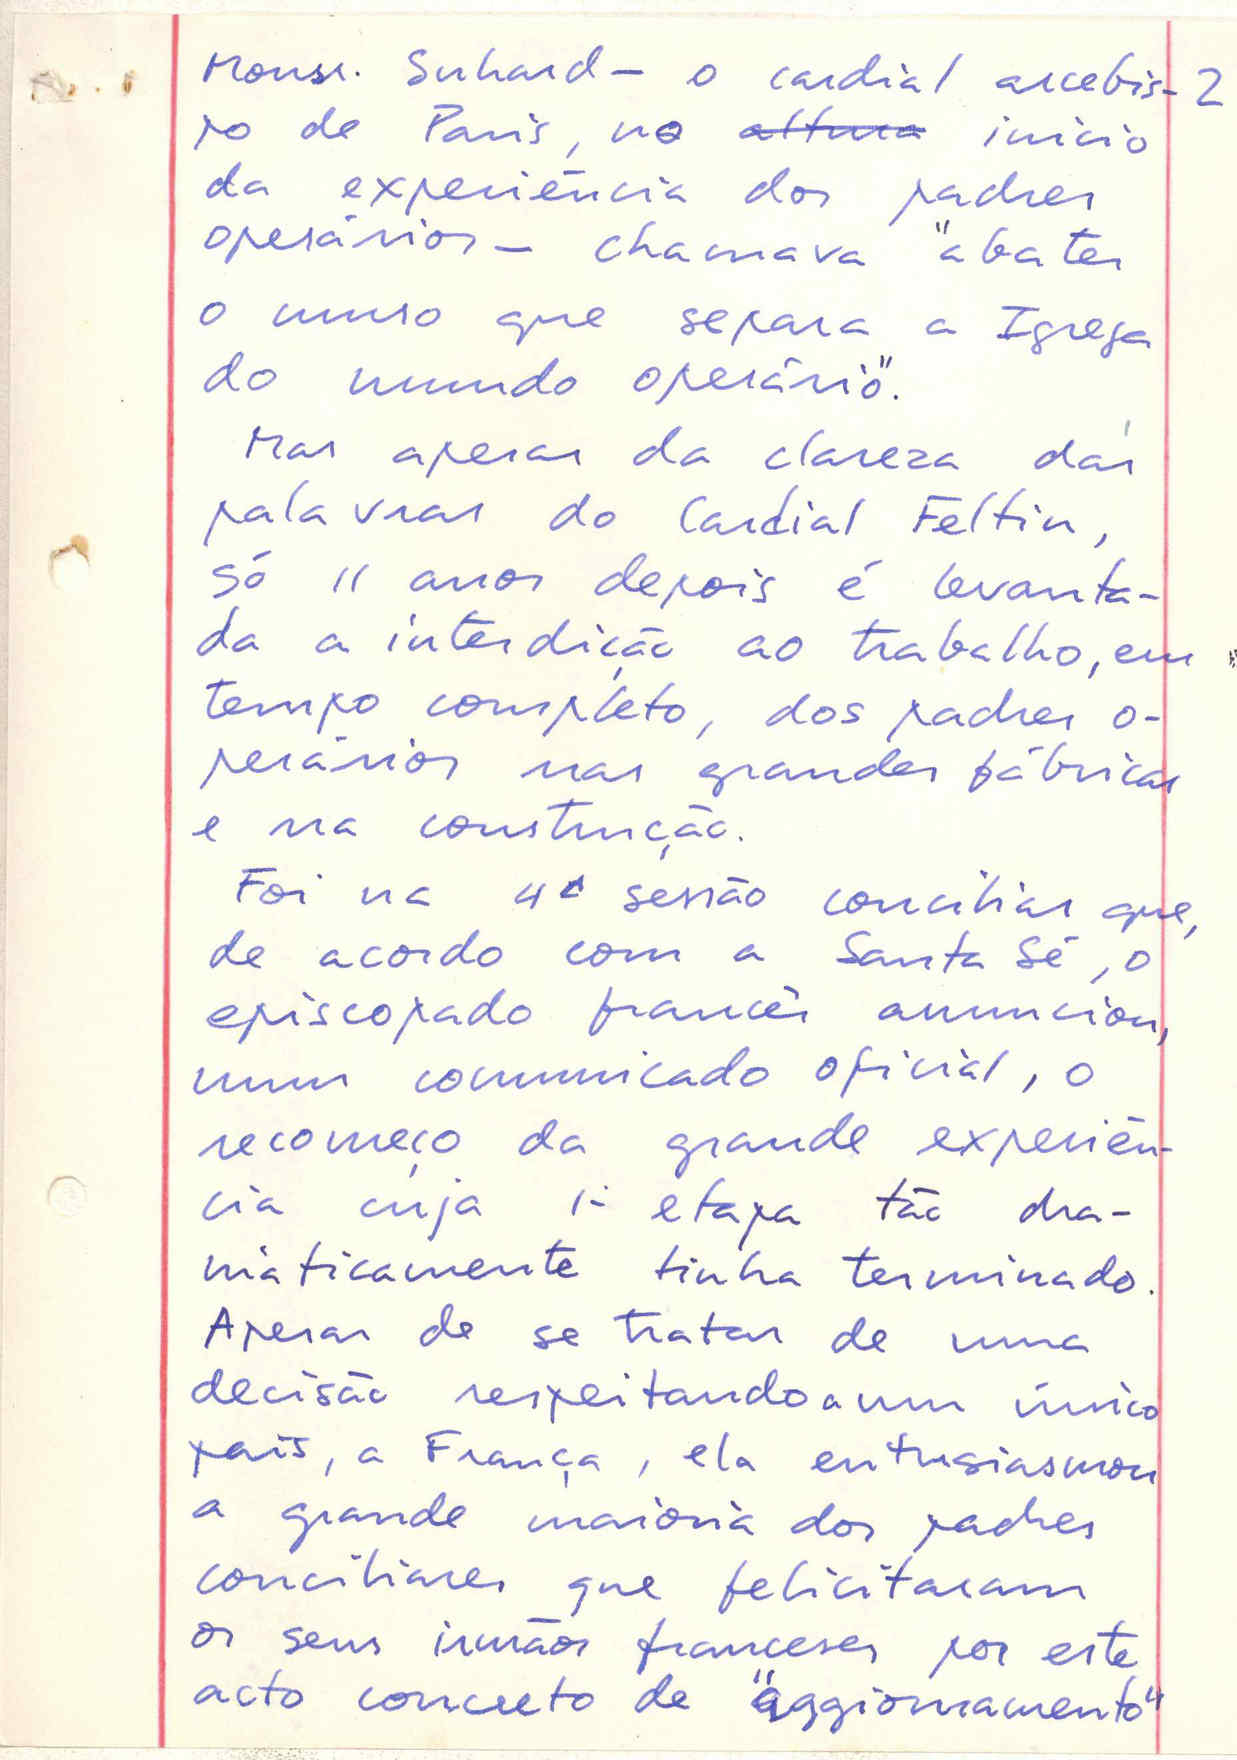 Monsr. Suhard – o cardial arcebis- 2
po de Paris, no altura início
da experiência dos padres
operários – chamava "abater
o muro que separa a Igreja
do mundo operário".
Mas apesar da clareza das
palavras do Cardial Feltin,
só 11 anos depois é levanta-
da a interdição ao trabalho, em
tempo completo, dos padres o-
perários nas grandes fábricas
e na construção.
Foi na 4ª sessão conciliar que,
de acordo com a Santa Sé, o
episcopado francês anunciou,
num comunicado oficial, o
recomeço da grande experiên-
cia cuja 1ª etapa tão dra-
màticamente tinha terminado.
Apesar de se tratar de uma
decisão respeitando a um único
país, a França, ela entusiasmou
a grande maioria dos padres
conciliares que felicitaram
os seus irmãos franceses por este
acto concreto de "aggiornamento"